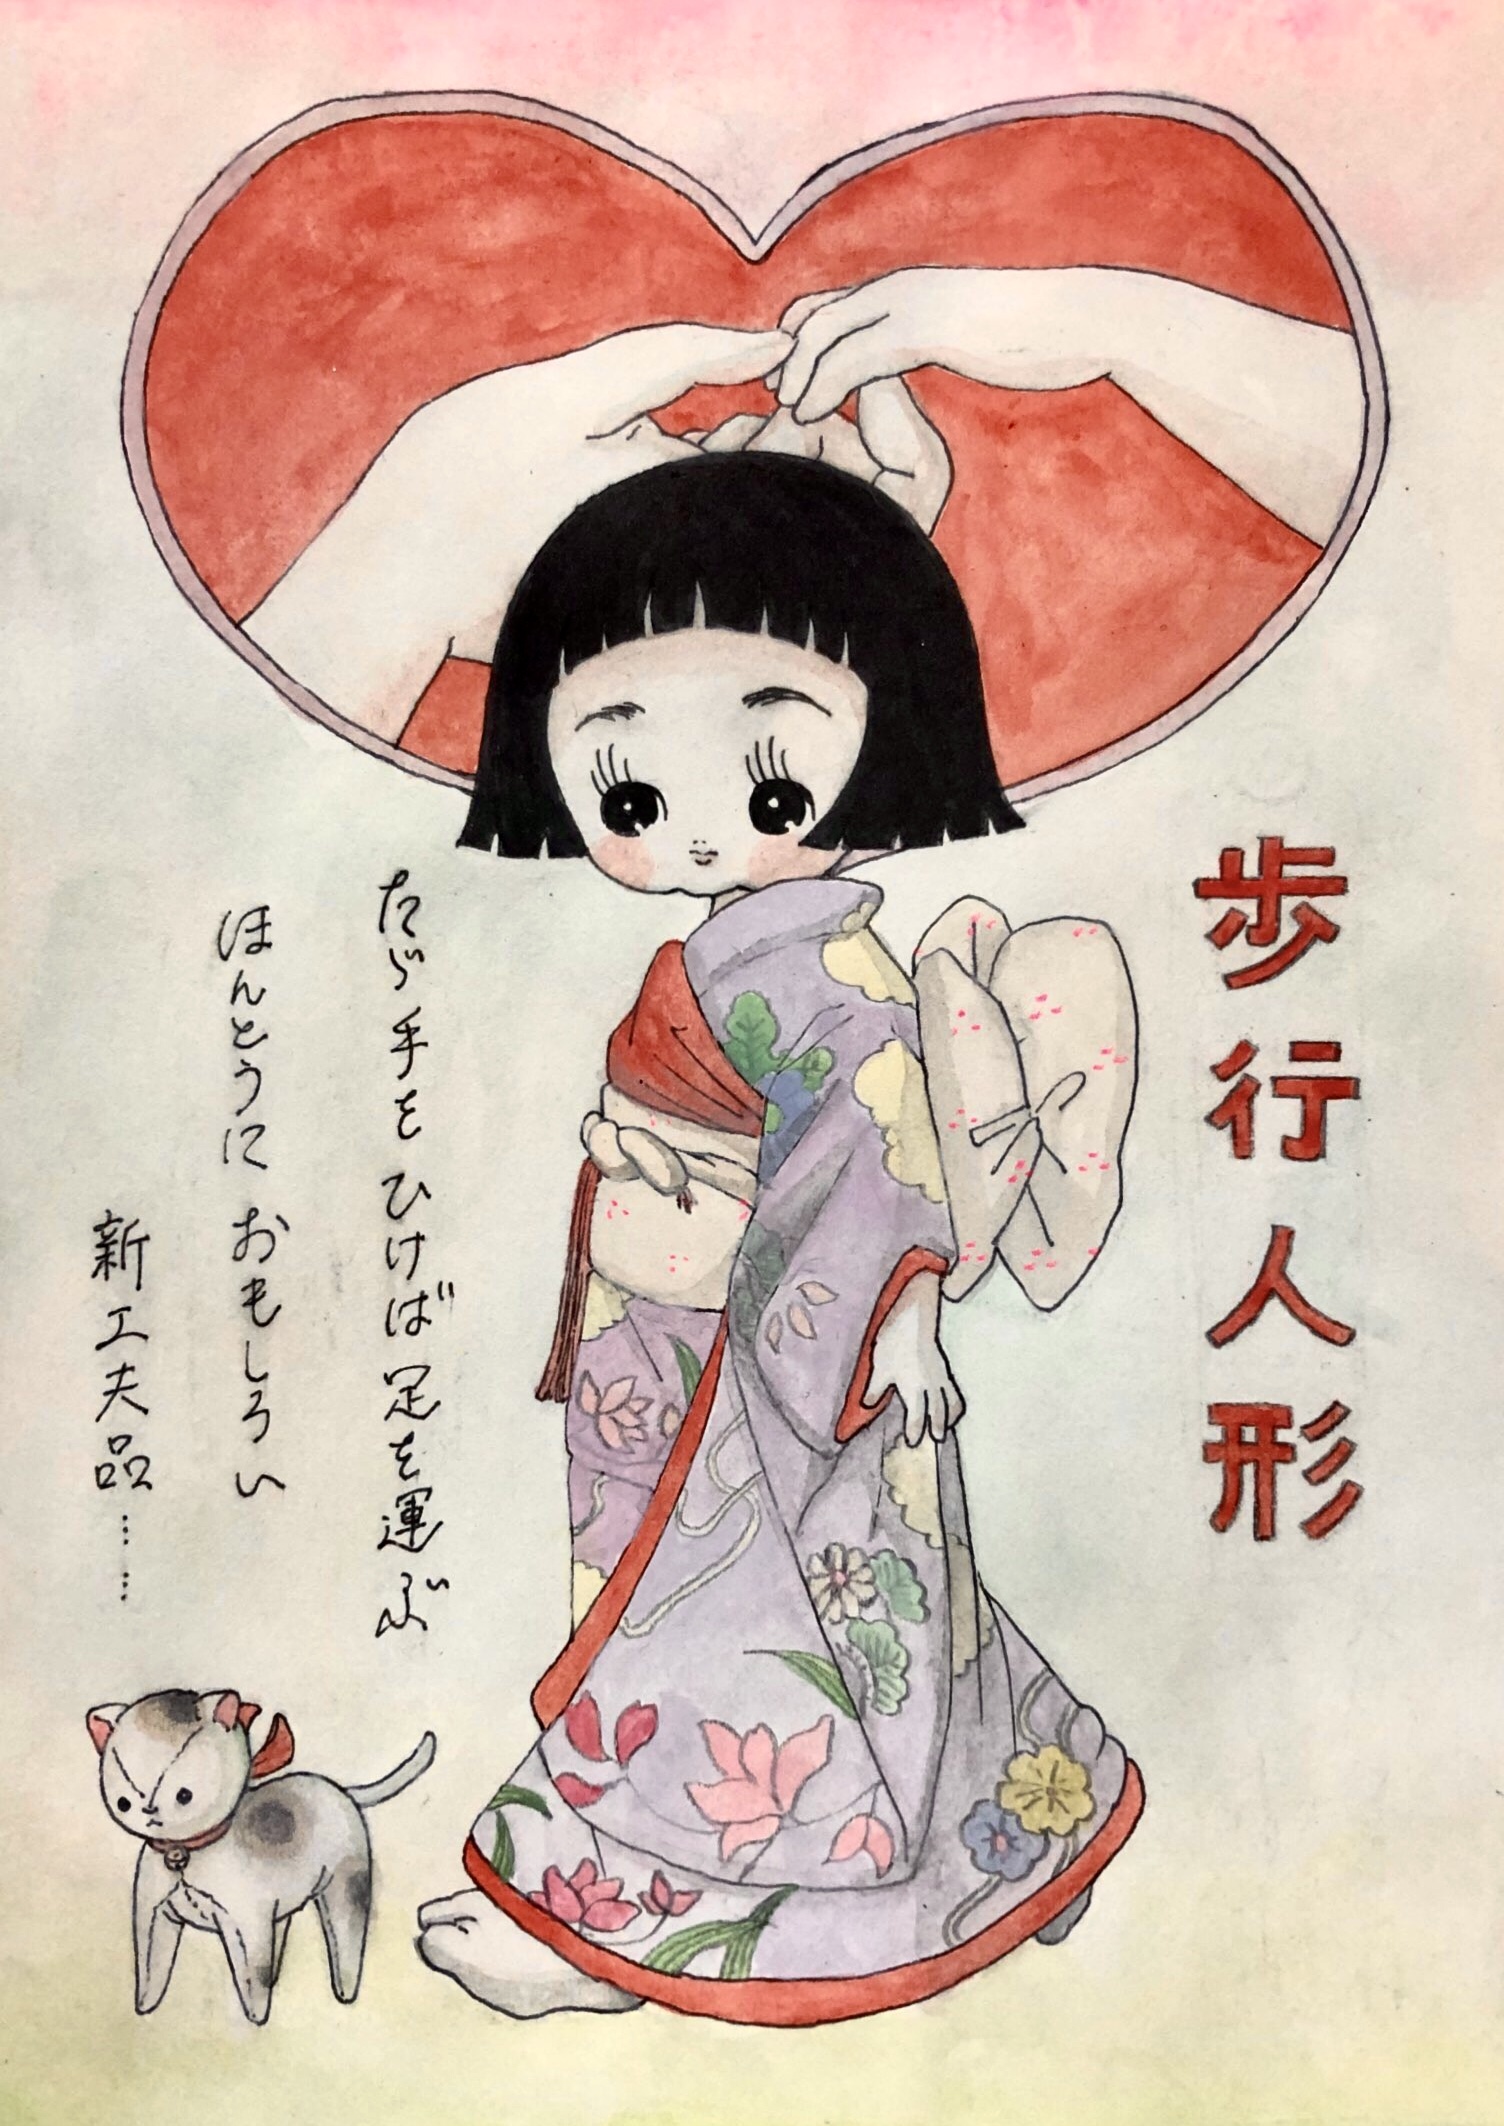 歩行人形
たゞ手をひけば足を運ぶ
ほんとうにおもしろい
新工夫品……